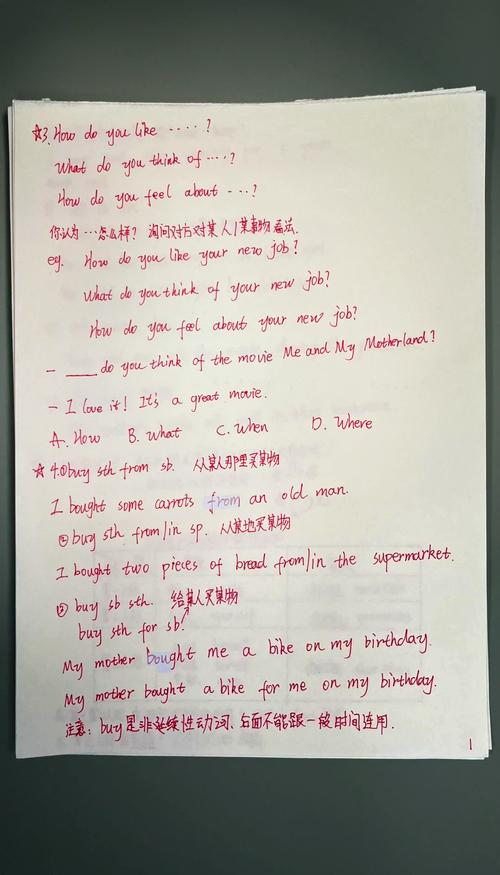 ☆3. How do you like ……?
What do you think of ……?
How do you feel about …?
你认为…怎么样? 询问对方对某人/某事物看法.
eg. How do you like your new job?
What do you think of your new job?
How do you feel about your new job?
- ____ do you think of the movie Me and My Motherland?
- I love it! It's a great movie.
A. How B. What C. When D. Where
☆ 4.①buy sth from sb. 从某人那里买某物
I bought some carrots from an old man.
②buy sth. from/in sp. 从某地买某物
I bought two pieces of bread from/in the supermarket.
③ buy sb sth. 给某人买某物
buy sth for sb.
My mother bought me a bike on my birthday.
My mother bought a bike for me on my birthday.
注意: buy是非延续性动词、后面不能跟一段时间连用.
1